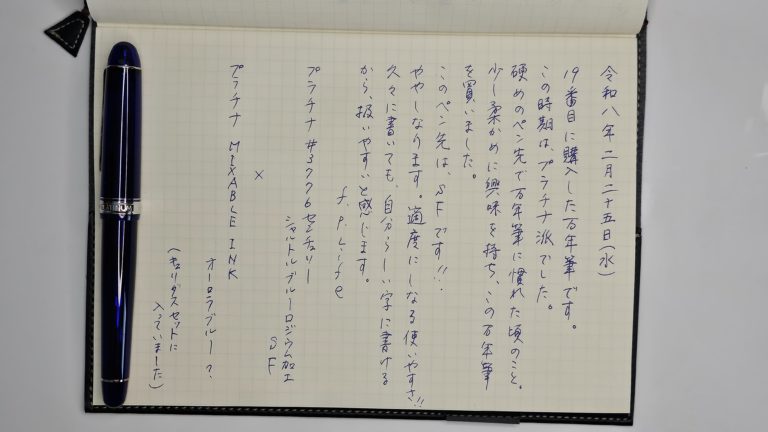 令和八年二月二十五日(水)
19番目に購入した万年筆です。
この時期は、プラチナ派でした。
硬めのペン先で万年筆に慣れた頃のこと。
少し柔かめに興味を持ち、この万年筆
を買いました。
このペン先は、SFです!!
ややしなります。適度にしなる使いやすさ!!
久々に書いても、自分らしい字に書ける
から、扱いやすいと感じます。
f.p.Life
プラチナ#3776センチュリー
シャルトルブルーロジウム加工
SF
×
プラチナ MIXABLE INK
オーロラブルー?
(キュリダスセットに
入っていました)
PLATINUM